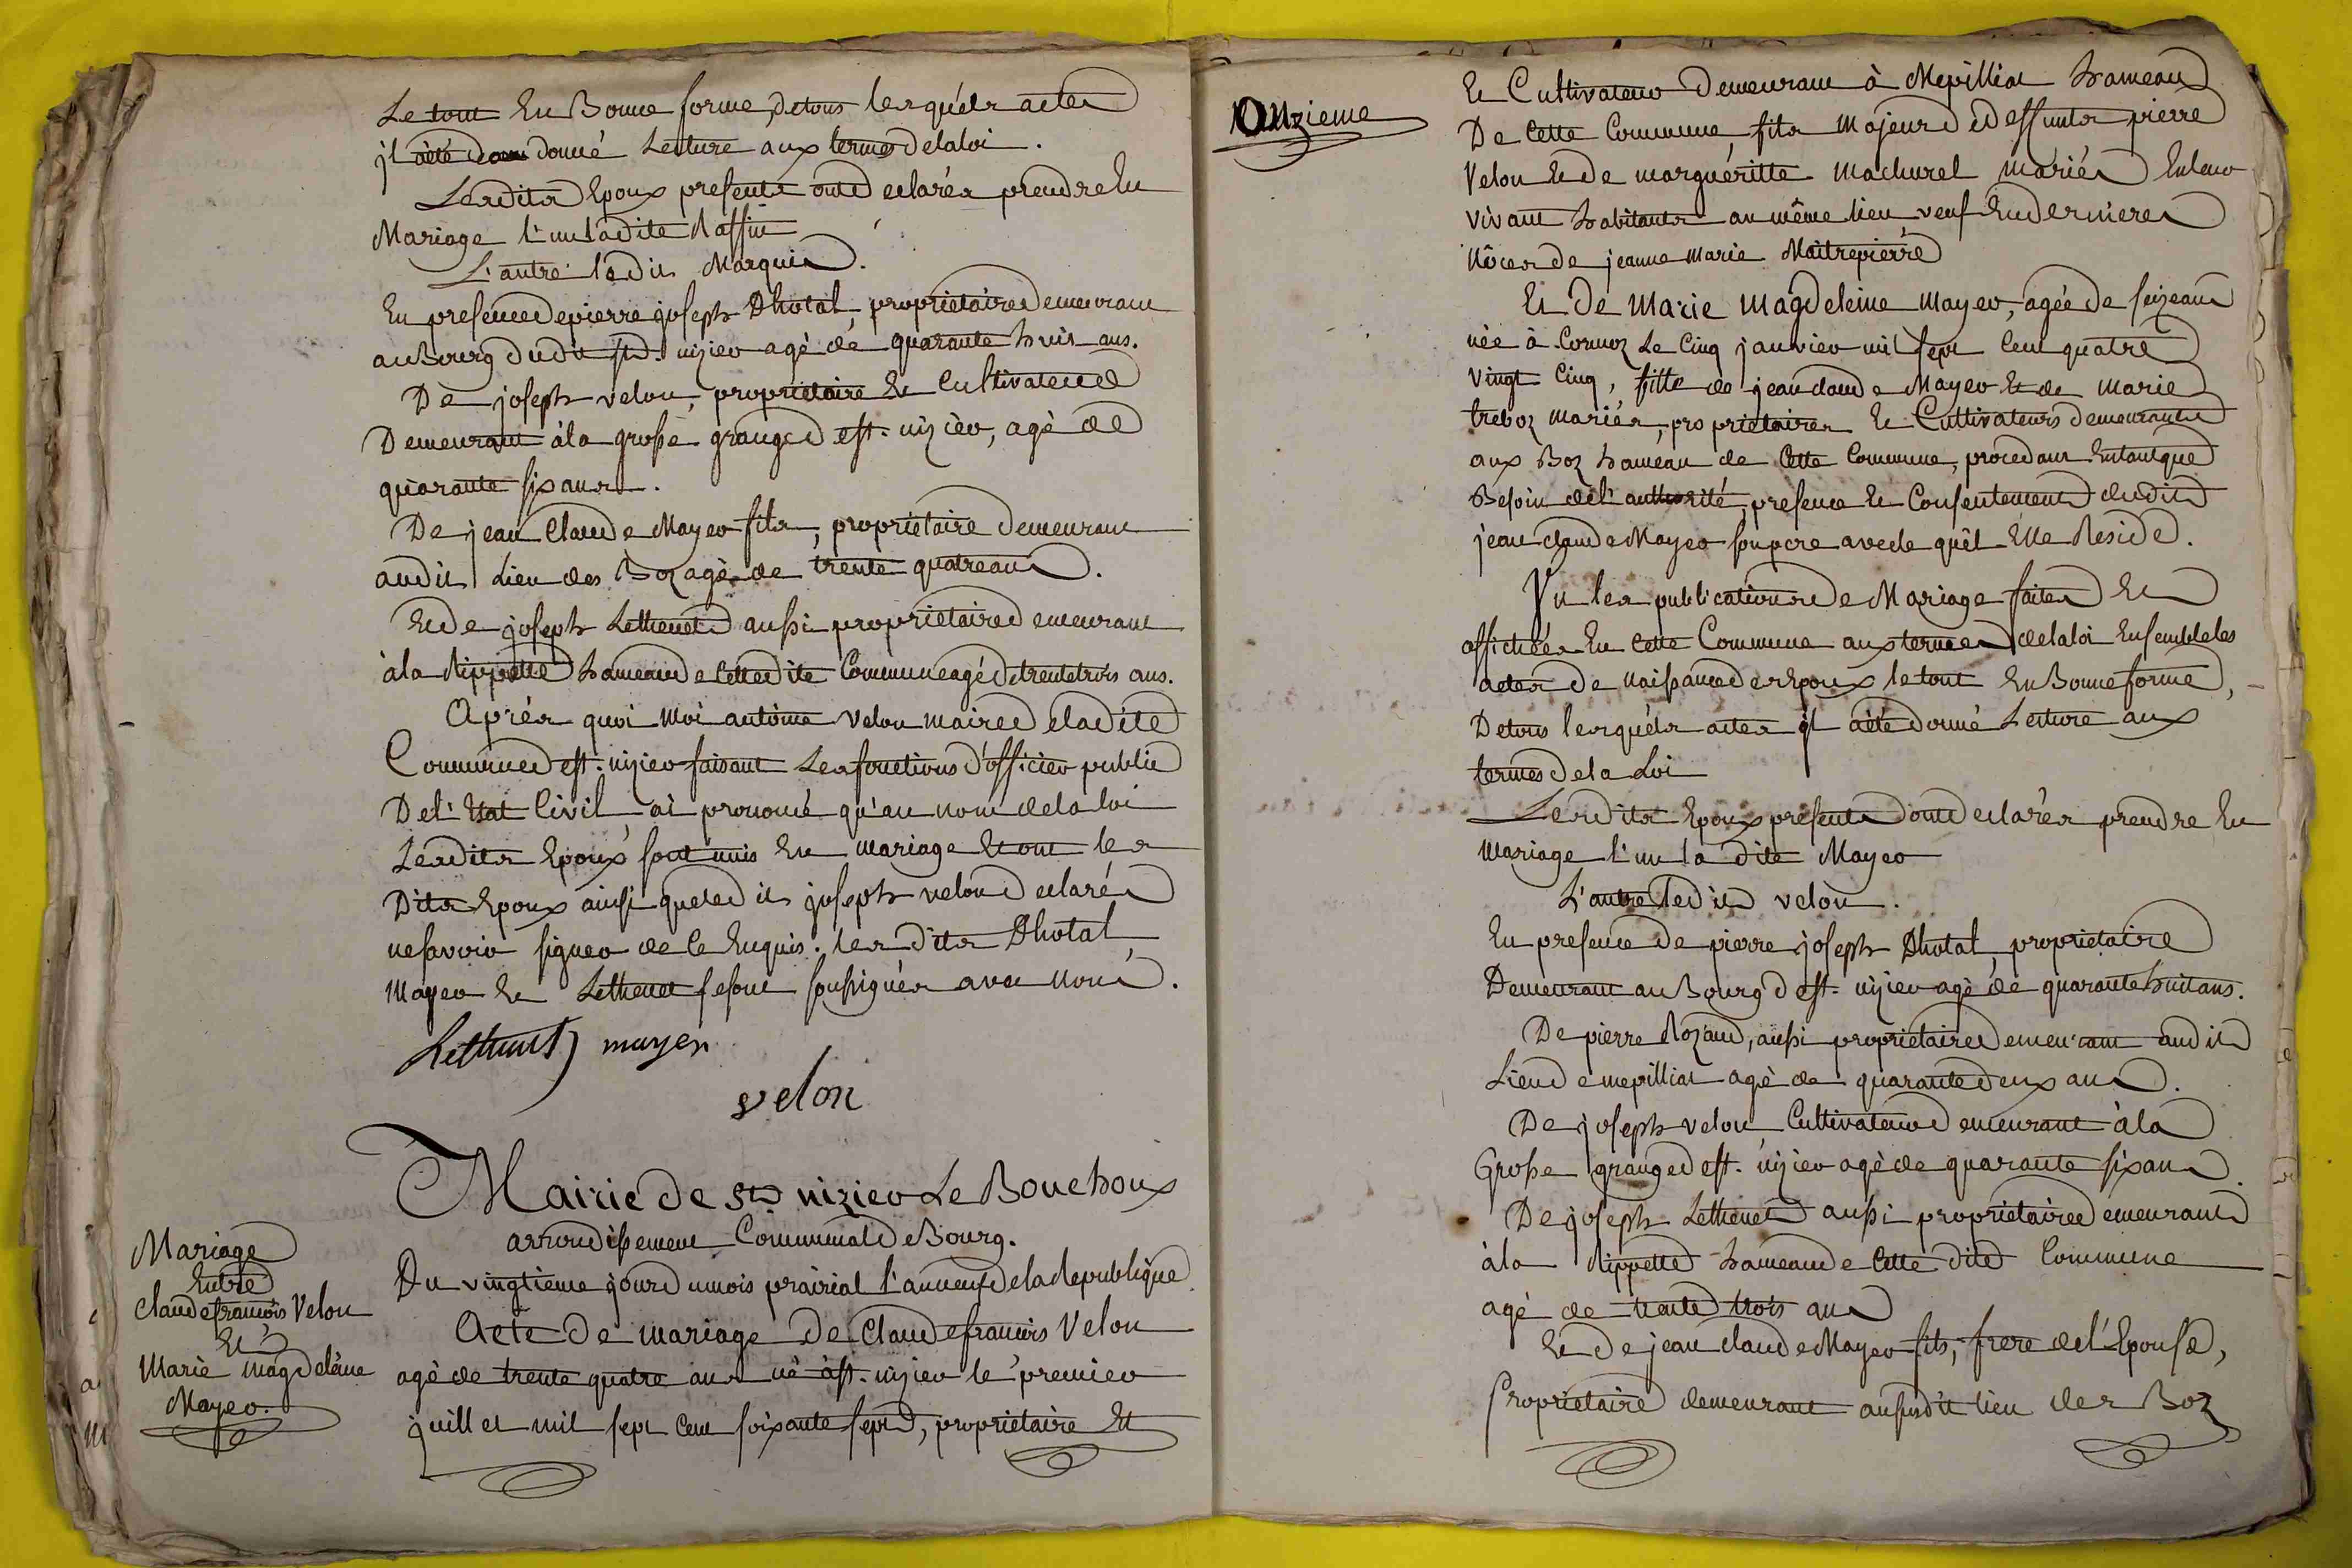 Le tout En Bonne forme, detous lesquéls actes
jl aèté donné Lecture aux termes delaloi.
Lesdits Epoux presents ontd eclarés prendre En
Mariage l'un ladite Raffin
L'autre ledit Marquis.
En presence depierre joseph Dhotal, proprietaire demeurant
auBourg dudit st. nizier agé dé quarante huit ans.
De joseph velon, proprietaire Et Cultivateur
Demeurant àla grosse grange d est. nizièr, agè de
quarante six ans.
De jean Claude Mayer fils, propriétaire demeurant
audit Lieu des Boz agè de trente quatre ans.
Et de joseph Lethenet aussi proprietaire demeurant
àla Rippette hameau de Cettedite Commune agé detrentetrois ans.
Aprés quoi moi antoine velon maire deladite
Commune d est. nizier faisant Les fonctions d'officier public
Del'Etat Civil, ai prononcé qu'au nom delaloi
Lesdits Epoux sont unis En mariage Et ont les
Dits Epoux ainsi queledit joseph velon declarés
nesavoir signer de Ce Enquis. les dits Dhotal,
Mayer Et Lethenet sesont soussignés avec nous.
Lethenet mayer
velon
Mairie de St. nizier Le Bouchoux
arrondissement Communal de Bourg.
Mariage
Entre
Claudefrancois Velon
Et
Marie magdeléine
Mayer.
Du vingtieme jour dumois prairial l'anneuf delaRepublique
Acte de mariage de Claudefrancois Velon
agè de trente quatre ans né àst. nizier le premier
juillet mil sept Cent soixante sept, propriétaire Et
Onzieme
Et Cultivateur Demeurant à Mepilliat hameau
De Cette Commune, fils majeur d édeffunts pierre
Velon Et de marguéritte machurel mariés Enleur
vivant habitants au même lieu veuf Endernieres
Nôces de jeanne Marie Maitrepierre
Et De Marie Magdeleine Mayer, agée de seizeans
née à Cormoz Le Cinq janvier mil sept Cent quatre
vingt Cinq, fille de jean claude Mayer Et de Marie
treboz mariés, proprietaires Et Cultivateurs demeurants
aux Boz hameau de Cette Commune, procedant Entantque
Besoin del'authorité presence Et Consentement dudit
jean claude Mayer sonpere avecle quèl Elle Reside.
Vu les publications de Mariage faites Et
affichées En Cette Commune aux termes delaloi Ensembleles
actes de naissance desEpoux letout EnBonneforme,
Detous lesquéls actes jl aèté donné Lecture aux
termes dela Loi
Lesdits Epoux presents ontd eclarés prendre En
mariage l'un la dite Mayer
L'autre ledit velon.
En presence de pierre joseph Dhotal, proprietaire
Demeurant auBourg d est. nizier agé dé quarantehuitans.
De pierre Rozand, aussi proprietaire demeurant audit
Lieu de mepilliat agè de quarantedeux ans.
De joseph velon Cultivateur demeurant àla
Grosse grange d est. nizier agè de quarante sixans.
De joseph Lethenet aussi proprietaire demeurant
àla Rippette hameau de Cette dite Commune
agé de trente trois ans
Et de jean claude Mayer fils, frere del'Epouse,
Proprietaire demeurant ausudit lieu des Boz